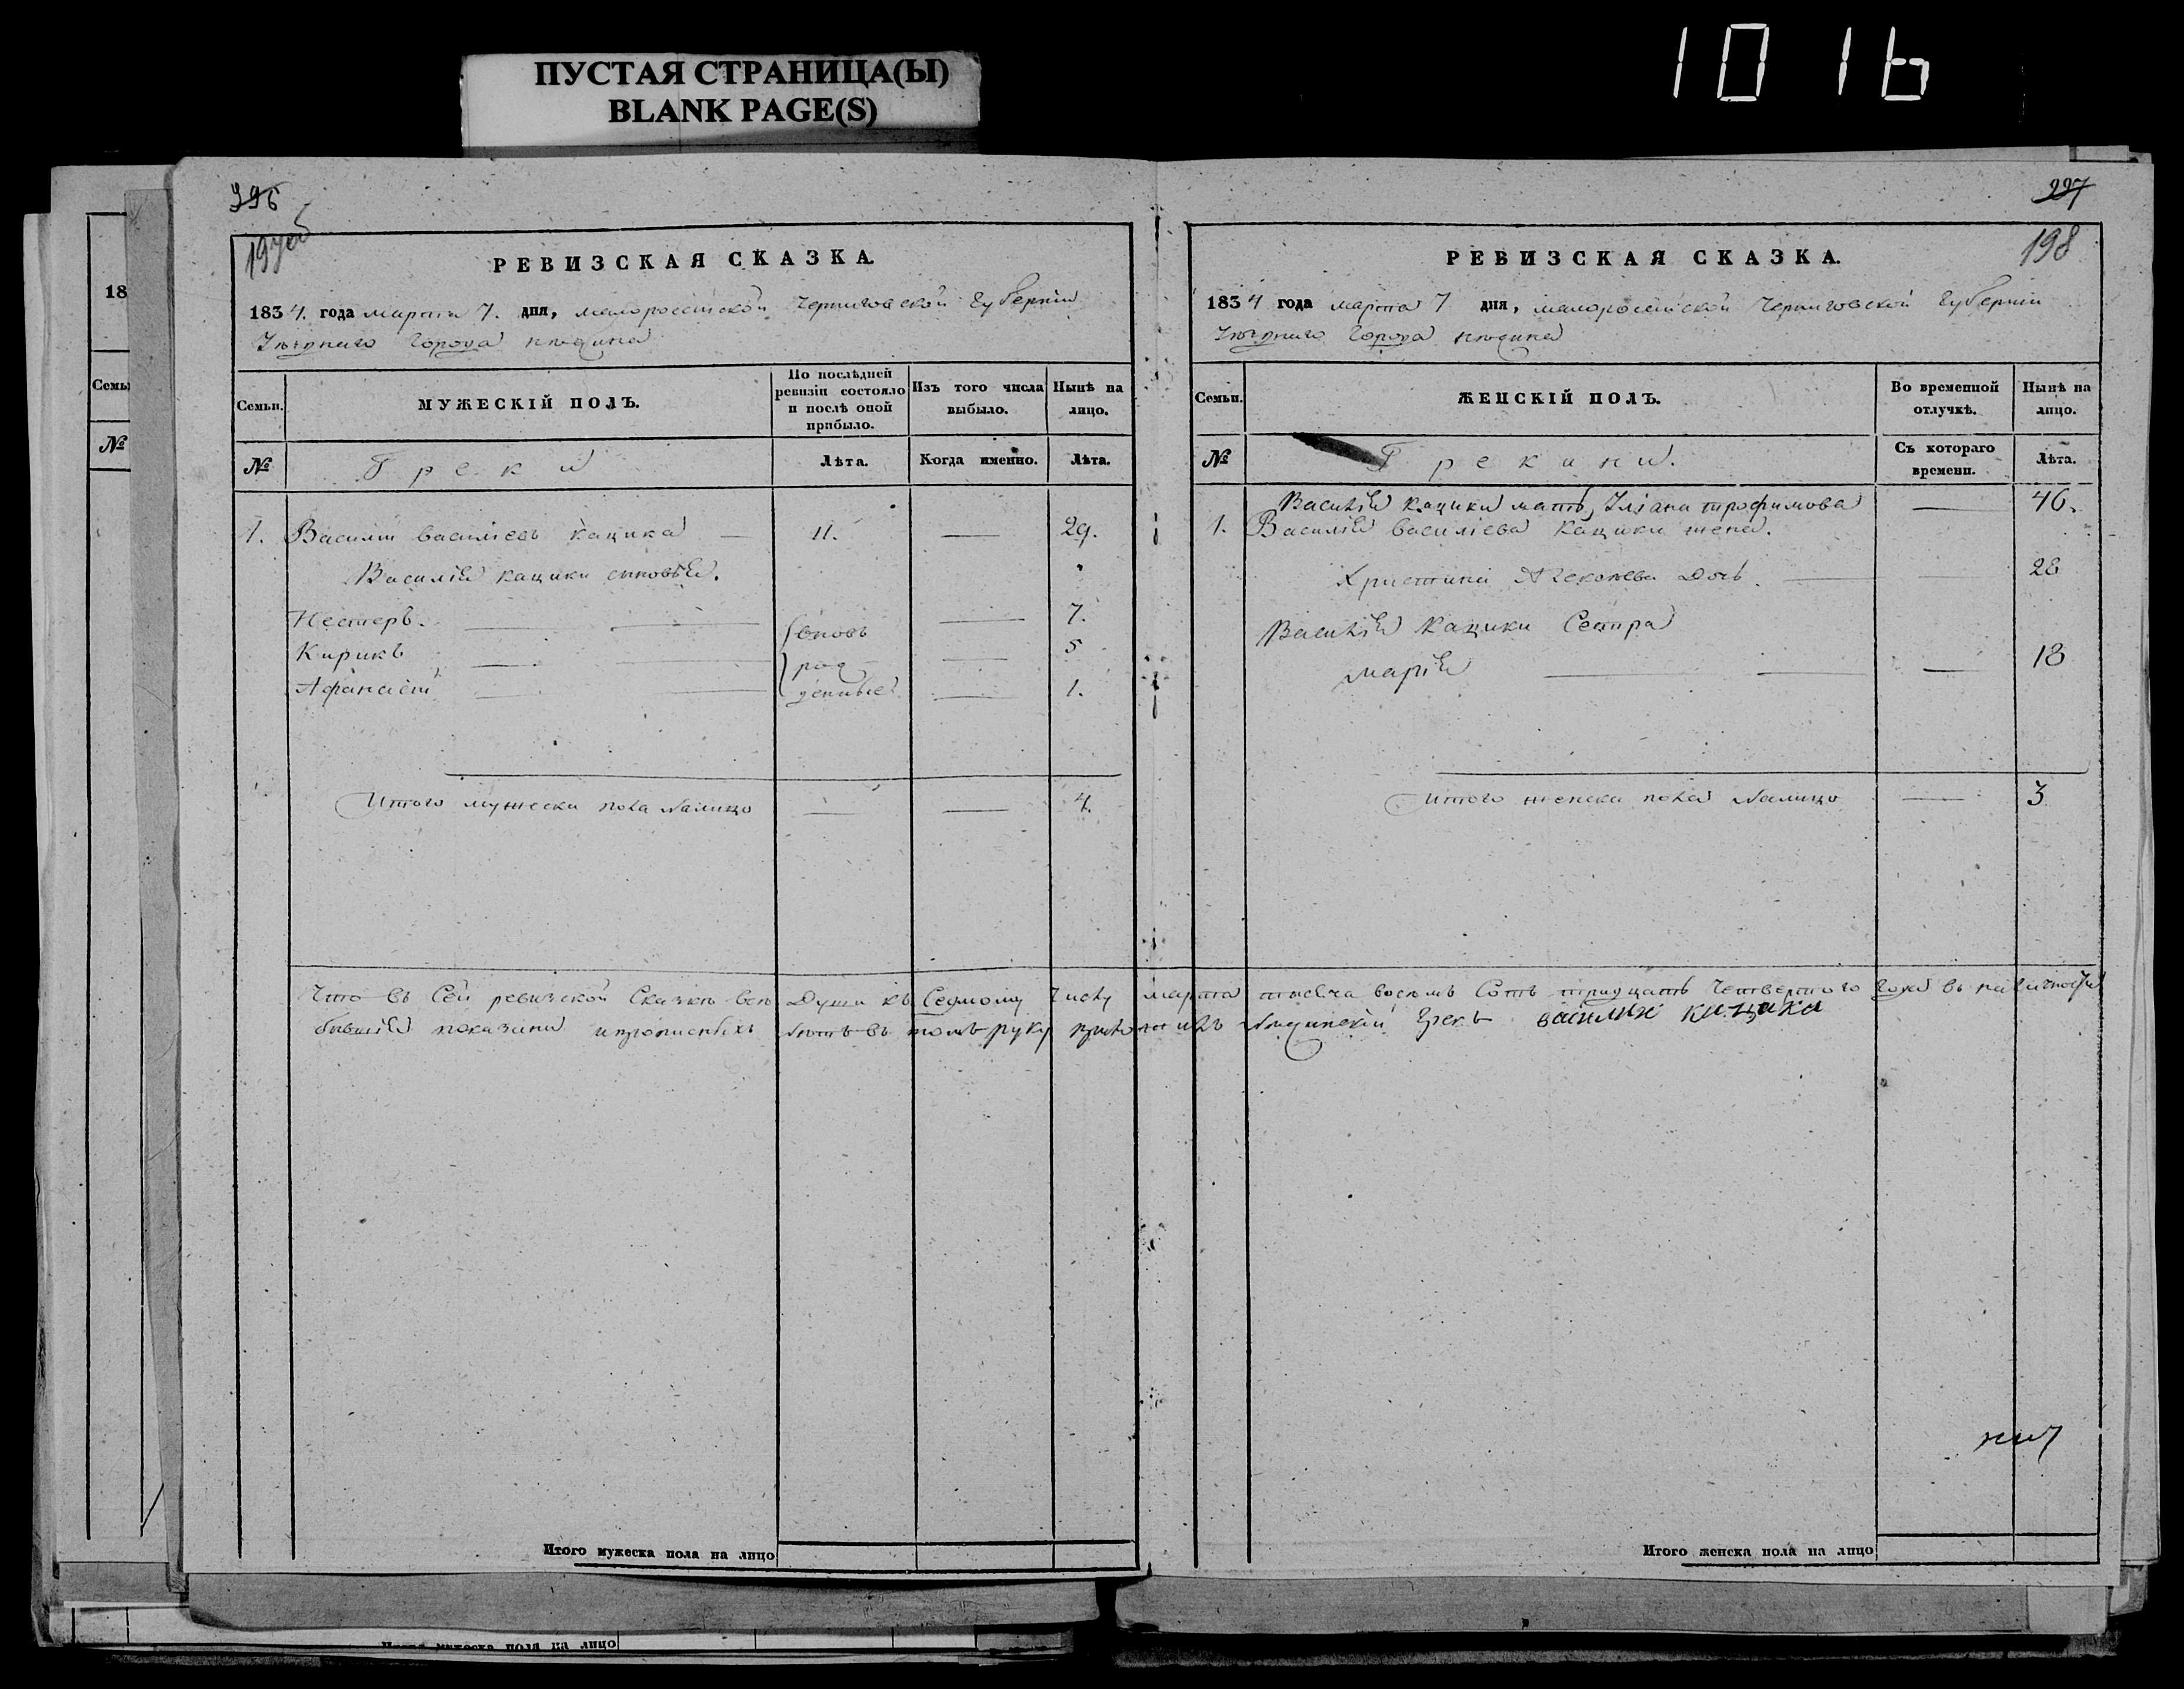 ПУСТАЯ СТРАНИЦА(Ы)
BLANK PAGE(S)
1016
18
Семьи
№
396
227
198
РЕВИЗСКАЯ СКАЗКА.
1834. года марта 7. дня, малоросейской Черниговской губернии
города нежина
Семьи.
МУЖЕСКІЙ ПОЛЪ.
По послѣдней ревизіи состояло и послѣ оной прибыло.
Изъ того числа выбыло.
Нынѣ на лицо.
№
Греки
Лѣта.
Когда именно.
Лѣта.
1. Василій василіевъ кацика — 11. — 29.
Василія кацики сыновья.
Нестеръ. — вновь — 7.
Кирикъ — рож — 5
Афанасій — денные — 1.
Итого мужеска пола налицо — — 4.
РЕВИЗСКАЯ СКАЗКА.
1834 года марта 7 дня, малоросейской Черниговской губерніи
города нежина
Семьи.
ЖЕНСКІЙ ПОЛЪ.
Во временной отлучкѣ.
Нынѣ на лицо.
№
Грекини.
Съ котораго времени.
Лѣта.
Василія кацики мать, Уліана трофимова — 46.
1. Василія василіева кацики жена.
Христина дочь — 28
Василія кацики сестра
марія — — 18
Итого женска пола налицо — 3
Что въ сей ревизской сказкѣ всѣ души къ седмому числу марта тысяча восемь сотъ тридцать четвертого года въ наличности
бывшія показаны и прописныхъ нѣтъ въ томъ руку приложилъ нежинскій грекъ василий кацика
Итого мужеска пола на лицо
Итого женска пола на лицо
Итого мужеска пола на лицо